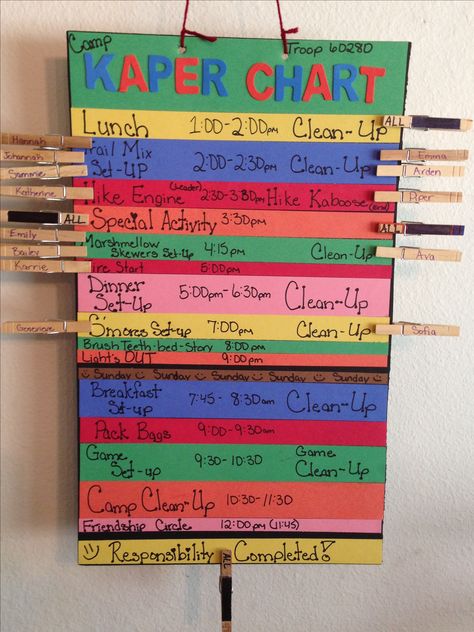 Camp
Troop 60280
KAPER CHART
ALL
Lunch 1:00-2:00pm Clean-Up
Hannah
Johannah
Trail Mix
Set-UP 2:00-2:30pm Clean-Up
Emma
Arden
Sammie
Katherine
Hike Engine (Leader) 2:30-3:30pm Hike Kaboose (end)
Piper
ALL
Special Activity 3:30pm
ALL
Emily
Bailey
Marshmellow
Skewers Set-Up 4:15pm Clean-Up
Ava
Karrie
Fire Start 5:00pm
Dinner
Set-Up 5:00pm-6:30pm Clean-Up
Genevieve
S'mores Set-up 7:00pm Clean-Up
Sofia
Brush Teeth-bed-Story 8:00pm
Light's OUT 9:00pm
Sunday Sunday Sunday Sunday Sunday
Breakfast
Set-up 7:45-8:30am Clean-Up
Pack Bags 9:00-9:30am
Game
Set-up 9:30-10:30 Game
Clean-Up
Camp Clean-Up 10:30-11:30
Friendship Circle 12:00pm (11:45)
Responsibility Completed!
ALL